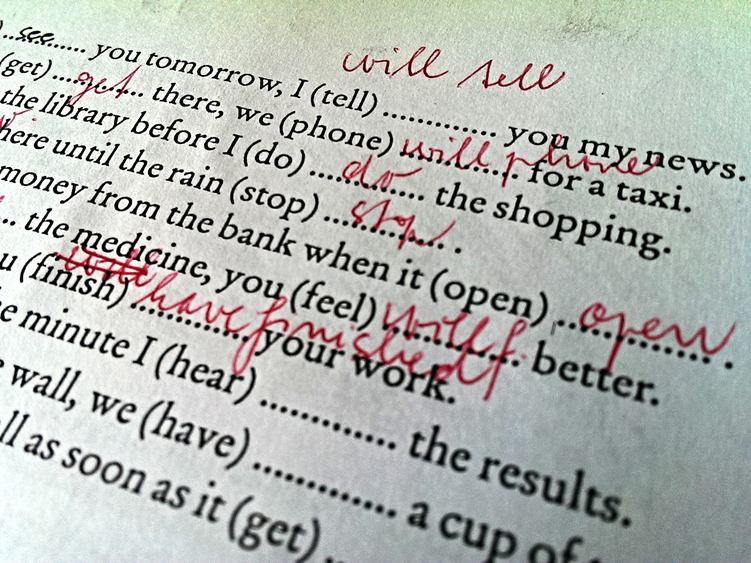 will sell
see you tomorrow, I (tell) ............ you my news.
(get) get there, we (phone) will phone for a taxi.
the library before I (do) do the shopping.
here until the rain (stop) stop .
money from the bank when it (open) open .
... the medicine, you (feel) will f better.
u (finish) will have finished your work.
e minute I (hear) ............ the results.
wall, we (have) ............ a cup of
ll as soon as it (get)